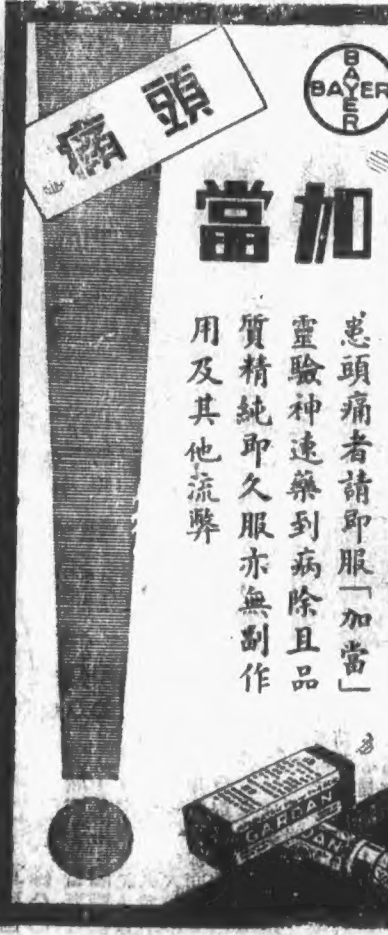 頭痛
BAYER
BAYER
加當
患頭痛者請即服「加當」
靈驗神速藥到病除且品
質精純即久服亦無副作
用及其他流弊
GARDAN